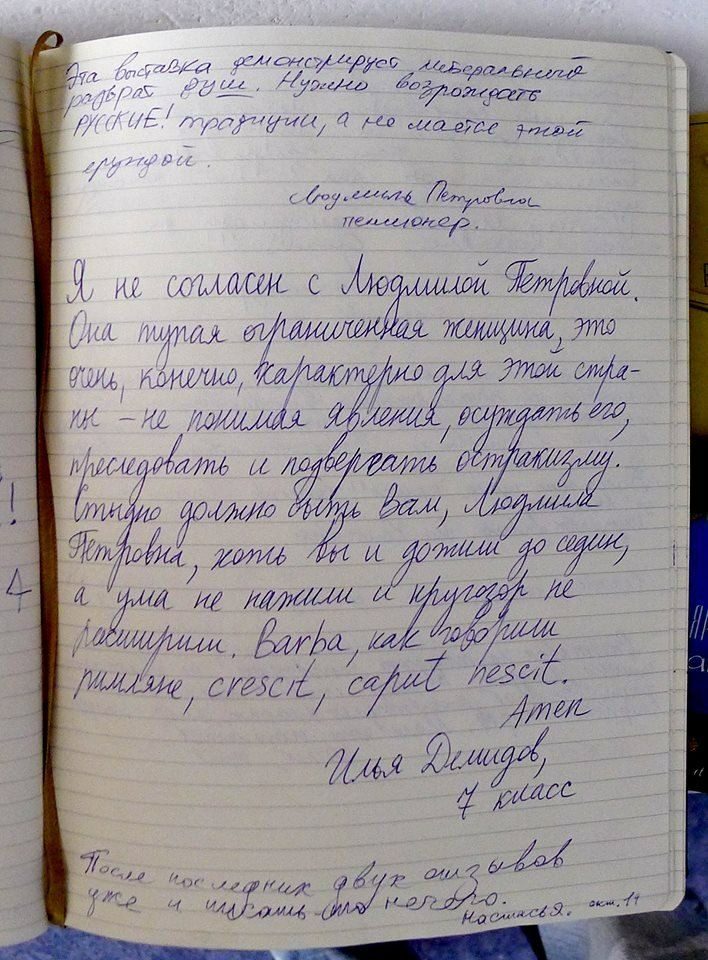 Эта выставка демонстрирует либеральный
разврат душ. Нужно возрождать
РУССКИЕ! традиции, а не маятся этой
ерундой.
Людмила Петровна
пенсионер.
Я не согласен с Людмилой Петровной.
Она тупая ограниченная женщина, это
очень, конечно, характерно для этой стра-
ны – не понимая явления, осуждать его,
преследовать и подвергать остракизму.
Стыдно должно быть Вам, Людмила
Петровна, хоть вы и дожили до седин,
а ума не нажили и кругозор не
расширили. Barba, как говорили
римляне, crescit, caput nescit.
Amen
Илья Демидов,
7 класс
После последних двух отзывов
уже и писать-то нечего.
Настасья. окт. 14
!
4